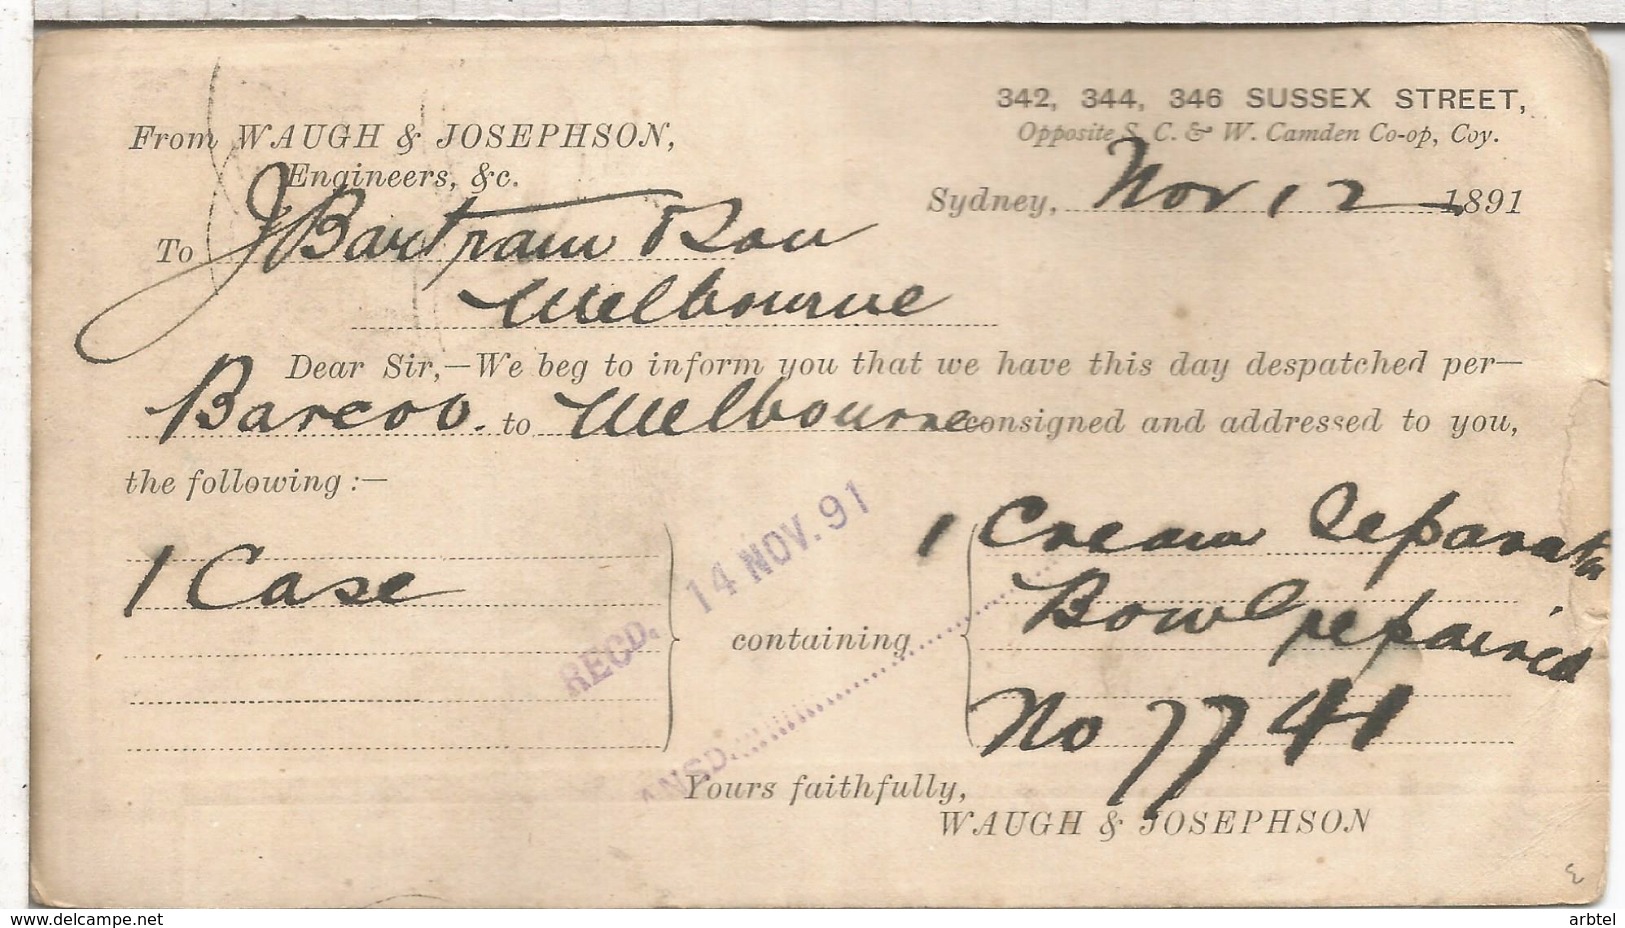 342, 344, 346 SUSSEX STREET,
Opposite S. C. & W. Camden Co-op, Coy.
From WAUGH & JOSEPHSON,
Engineers, &c.
Sydney, Nov 12 1891
To J Bartram & Son
Melbourne
Dear Sir,—We beg to inform you that we have this day despatched per—
Barcoo. to Melbourne consigned and addressed to you,
the following :—
1 Case
RECD. 14 NOV. 91
ANSD.
containing
1 Cream Separator
Bowl repaired
No 7741
Yours faithfully,
WAUGH & JOSEPHSON
www.delcampe.net
arbtel